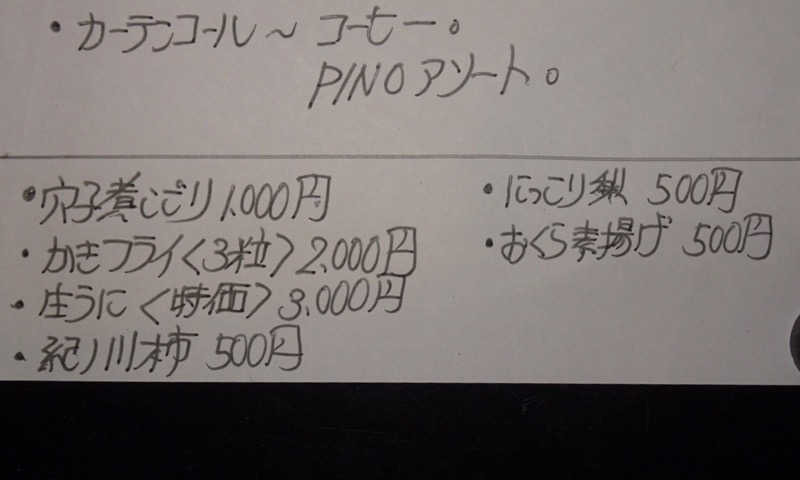 ・カーテンコール～ コーヒー。
PINOアソート。
・穴子煮こごり 1.000円
・かきフライ〈3粒〉2.000円
・生うに〈特価〉3.000円
・紀ノ川柿 500円
・にっこり梨 500円
・おくら素揚げ 500円